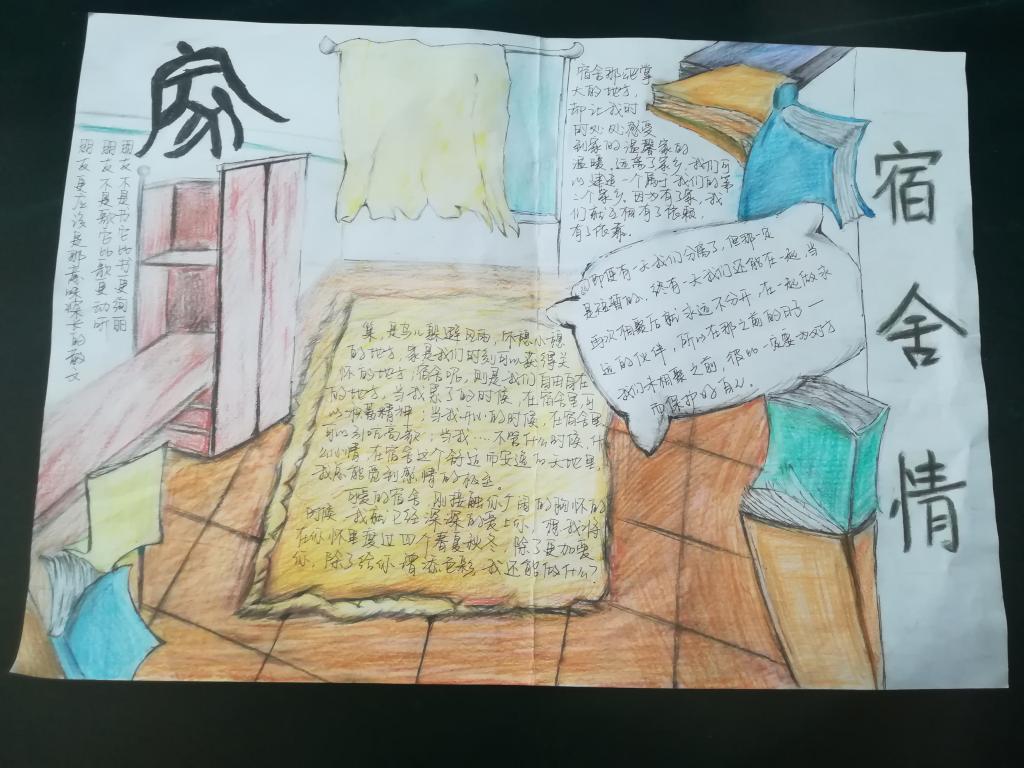 家
朋友不是书它比书更绚丽
朋友不是歌它比歌更动听
朋友更应该是那意味深长的散文
宿舍那巴掌
大的地方,
却让我时
时处处感受
到家的温馨家的
温暖。远离了家乡,我们可
以建造一个属于我们的第
二个家乡。因为有了家,我
们就拥有了依赖,
有了依靠。
宿舍情
即使有一天我们分离了,但那一定
是短暂的,终有一天我们还能在一起,当
再次相聚后就永远不分开,在一起做永
远的伙伴,所以在那之前的日子——
我们未相聚之前,彼此一定要好好
的保护好自己。
巢,是鸟儿躲避风雨,休憩小憩
的地方,家是我们时刻可以获得关
怀的地方,宿舍呢,则是我们自由自在
的地方,当我累了的时候,在宿舍里可
以养蓄精神;当我开心的时候,在宿舍里
可以引吭高歌;当我……不管什么时候,什
么心情,在宿舍这个舒适而安逸的天地里,
我总能受到感情的
可爱的宿舍,刚接触你广阔的胸怀的
时候,我就已经深深的爱上你,想我将
在你怀里度过四个春夏秋冬,除了更加爱
你,除了给你增添色彩,我还能做什么?